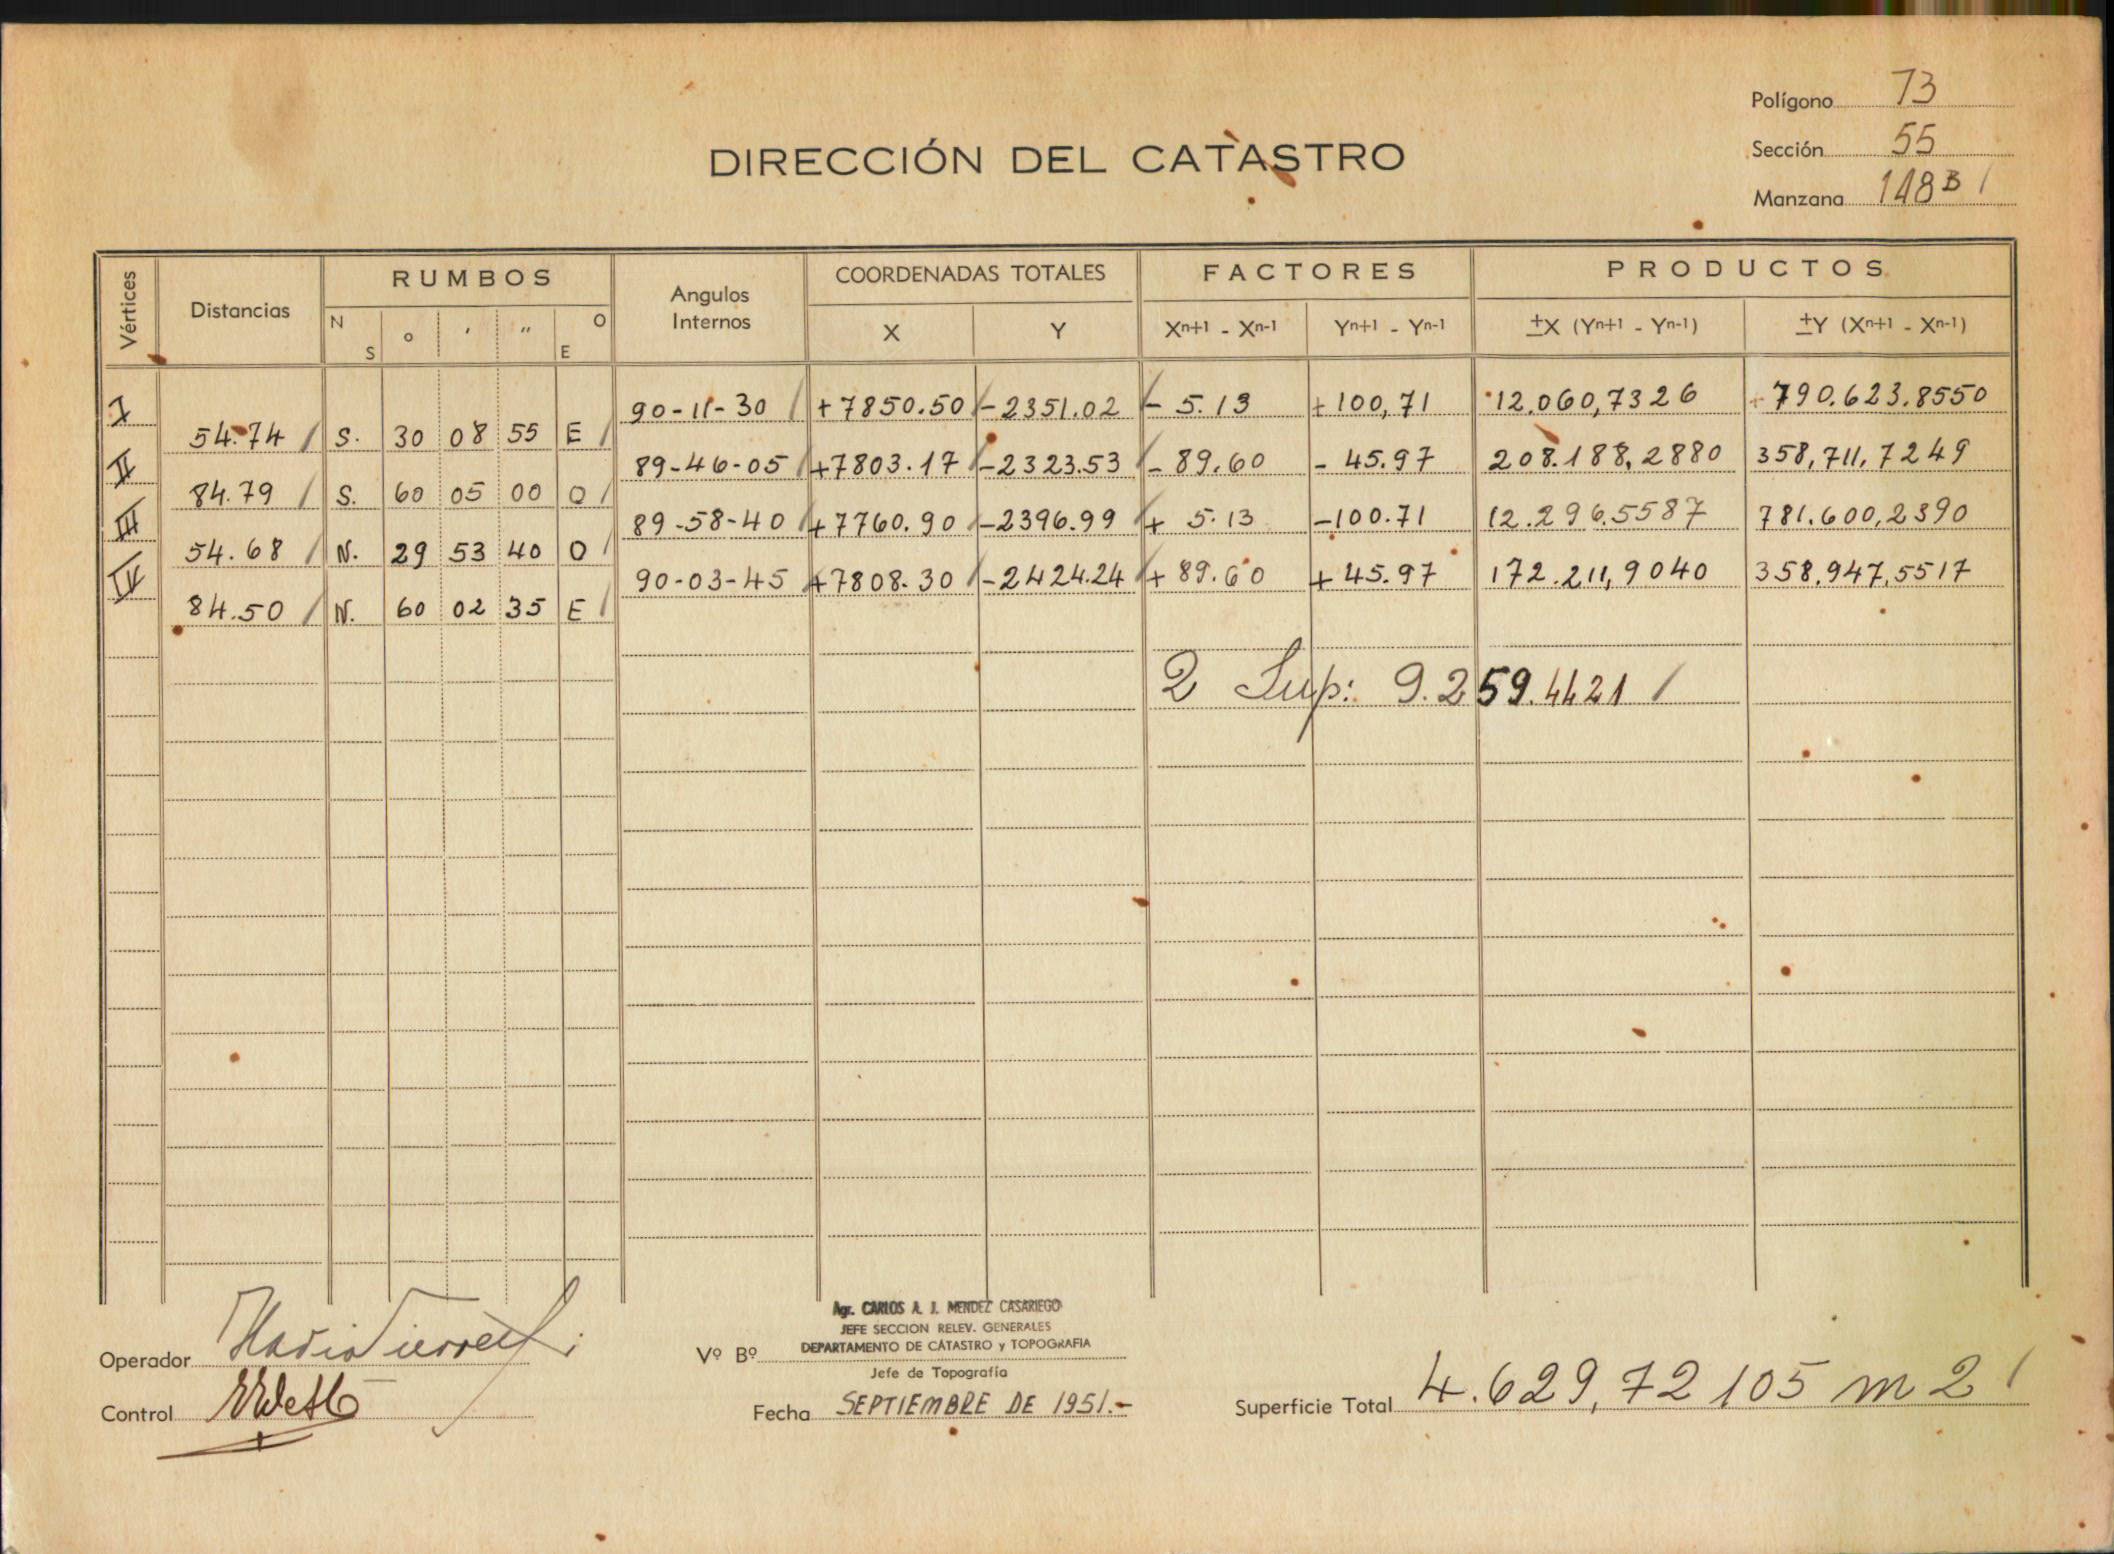 Polígono 73
DIRECCIÓN DEL CATASTRO
Sección 55
Manzana 148 B /
Vértices Distancias RUMBOS Angulos Internos COORDENADAS TOTALES FACTORES PRODUCTOS
N S ° ' " O E X Y Xⁿ⁺¹ - Xⁿ⁻¹ Yⁿ⁺¹ - Yⁿ⁻¹ ±X (Yⁿ⁺¹ - Yⁿ⁻¹) ±Y (Xⁿ⁺¹ - Xⁿ⁻¹)
I 90-11-30 / +7850.50 /-2351.02 /- 5.13 +100,71 12.060,7326 +790.623.8550
54.74 / S. 30 08 55 E /
II 89-46-05 /+7803.17 /-2323.53 /- 89.60 - 45.97 208.188,2880 358,711,7249
84.79 / S. 60 05 00 O /
III 89-58-40 /+7760.90 /-2396.99 /+ 5.13 -100.71 12.296.5587 781.600,2390
54.68 / N. 29 53 40 O /
IV 90-03-45 /+7808.30 /-2424.24 /+ 89.60 +45.97 172.211,9040 358.947,5517
84.50 / N. 60 02 35 E /
2 Sup: 9.259.4421 /
Agr. CARLOS A. J. MENDEZ CASARIEGO
JEFE SECCION RELEV. GENERALES
DEPARTAMENTO DE CATASTRO y TOPOGRAFIA
Operador
Vº Bº
Jefe de Topografía
Control
Fecha SEPTIEMBRE DE 1951.-
Superficie Total 4.629,72105 m2 /